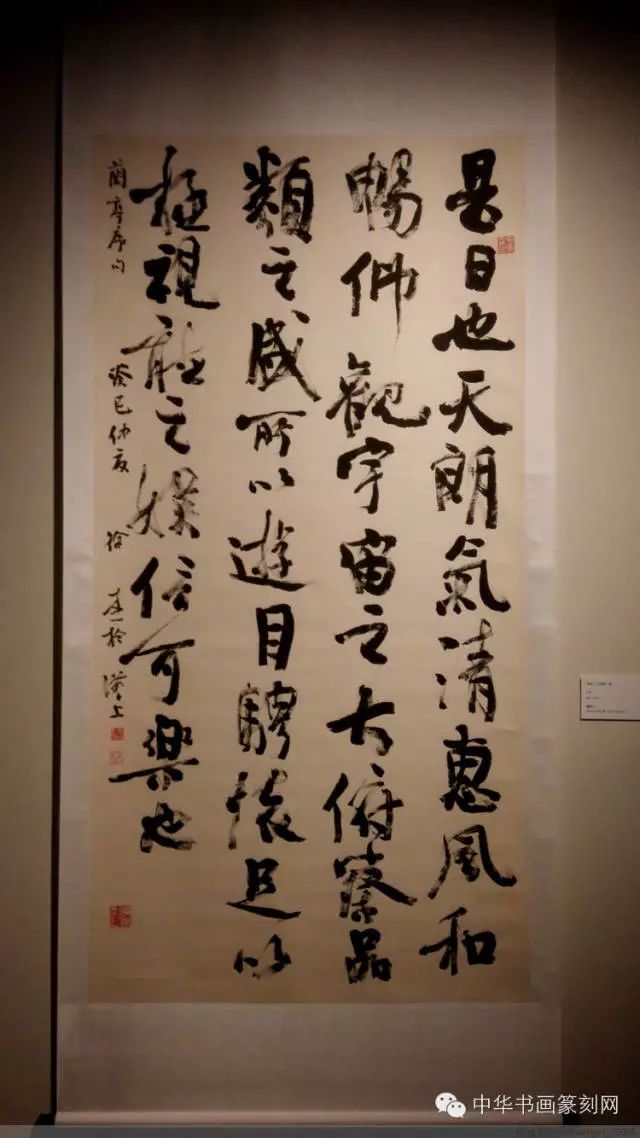 是日也天朗氣清惠風和
暢仰觀宇宙之大俯察品
類之盛所以遊目騁懷足以
極視聽之娛信可樂也
蘭亭序句 癸巳仲夏 徐本一於漢上
中华书画篆刻网